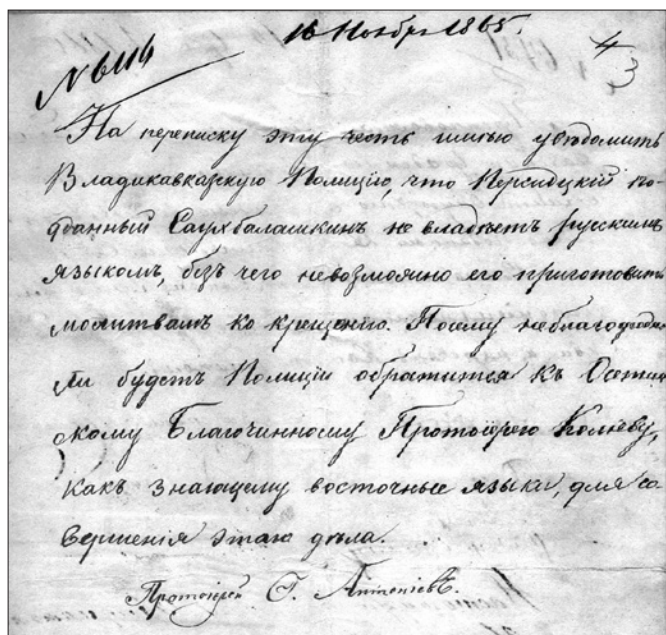 16 Ноябр 1865.
№ 6116
4
3
На переписку эту честь имѣю увѣдомить
Владикавказскую Полицію, что Персидцкій по-
данный Саухбалашкинъ не владѣетъ русскимъ
языкомъ, безъ чего невозможно его приготовить
молитвамъ ко крещенію. Посему неблагоугодно
ли будетъ Полиціи обратится къ Осетин
скому Благочинному Протоіерею Колиеву,
какъ знающему восточные языки, для со
вершенія этаго дѣла.
Протоіерей